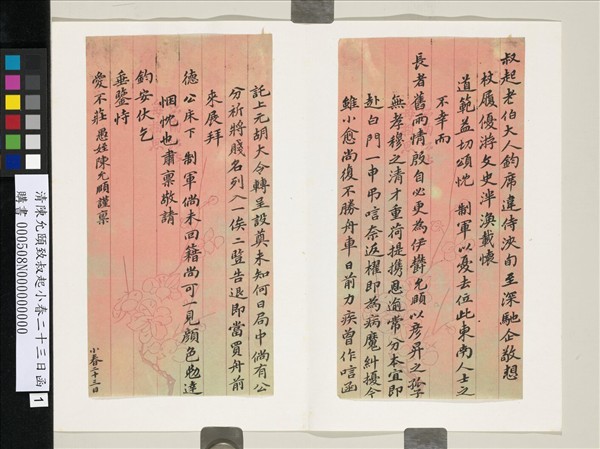 叔起老伯大人鈞席違侍浹旬至深馳企敬想
杖履優游文史半渙載懷
道範益切頌忱 制軍以憂去位此東南人士之
不幸而
長者舊雨情殷自必更為伊鬱允頤以彥昇之孤子
無孝穆之清才重荷提携恩逾常分本宜即
赴白門一申弔唁奈返櫂即為病魔糾擾今
雖小愈尚復不勝舟車日前力疾曾作唁函
託上元胡大令轉呈設奠未知何日局中倘有公
分祈將賤名列入一俟二豎告退即當買舟前
來展拜
德公床下 制軍倘未回籍尚可一見顏色勉達
悃忱也肅稟敬請
鈞安伏乞
垂鑒恃
愛不莊愚姪陳允頤謹稟
小春二十三日
清陳允頤致叔起小春二十三日函
購書 000508N000000000
1